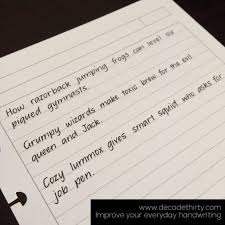 How razorback jumping frogs can level six
piqued gymnasts.
Grumpy wizards make toxic brew for the evil
queen and Jack.
Cozy lummox gives smart squid who asks for
job pen.
www.decadethirty.com
Improve your everyday handwriting